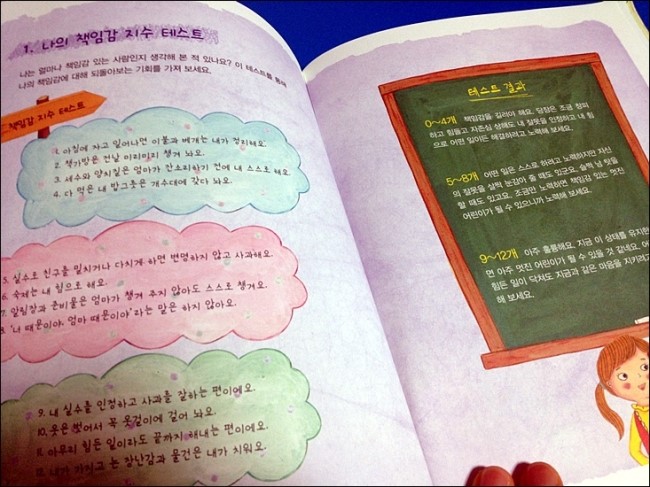 1. 나의 책임감 지수 테스트
나는 얼마나 책임감 있는 사람인지 생각해 본 적 있나요? 이 테스트를 통해
나의 책임감에 대해 되돌아보는 기회를 가져 보세요.
책임감 지수 테스트
1. 아침에 자고 일어나면 이불과 베개는 내가 정리해요.
2. 책가방은 전날 미리미리 챙겨 놔요.
3. 세수와 양치질은 엄마가 잔소리하기 전에 내 스스로 해요.
4. 다 먹은 내 밥그릇은 개수대에 갖다 놔요.
5. 실수로 친구를 밀치거나 다치게 하면 변명하지 않고 사과해요.
6. 숙제는 내 힘으로 해요.
7. 알림장과 준비물은 엄마가 챙겨 주지 않아도 스스로 챙겨요.
8. '너 때문이야. 엄마 때문이야'라는 말은 하지 않아요.
9. 내 실수를 인정하고 사과를 잘하는 편이에요.
10. 옷은 벗어서 꼭 옷걸이에 걸어 놔요.
11. 아무리 힘든 일이라도 끝까지 해내는 편이에요.
12. 내가 가지고 논 장난감과 물건은 내가 치워요.
테스트 결과
0~4개 책임감을 길러야 해요. 당장은 조금 창피
하고 힘들고 자존심 상해도 내 잘못을 인정하고 내 힘
으로 어떤 일이든 해결하려고 노력해 보세요.
5~8개 어떤 일은 스스로 하려고 노력하지만 자신
의 잘못을 살짝 눈감아 줄 때도 있군요. 슬쩍 남 탓을
할 때도 있고요. 조금만 노력하면 책임감 있는 멋진
어린이가 될 수 있으니까 노력해 보세요.
9~12개 아주 훌륭해요. 지금 이 상태를 유지한
면 아주 멋진 어린이가 될 수 있을 것 같네요. 어
힘든 일이 닥쳐도 지금과 같은 마음을 지키려고
해 보세요.